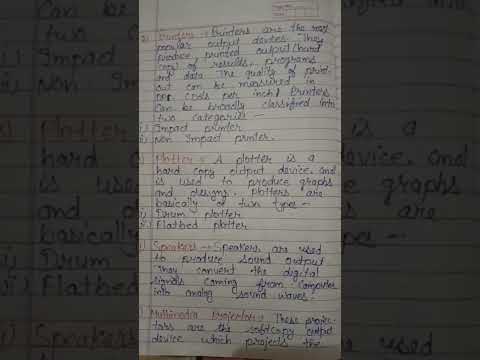 2) Printers :- Printers are the most
popular output devices. They
produce printed output (hard
copy) of results, programs
and data. The quality of print
out can be measured in
DPI (dots per inch). Printers
can be broadly classified into
two categories -
i) Impact printer
ii) Non Impact printer.
3) Plotter :- A plotter is a
hard copy output device and
is used to produce graphs
and designs. Plotters are
basically of two types -
i) Drum plotter
ii) Flatbed plotter
Speakers :- Speakers are used
to produce sound output
They convert the digital
signals coming from computer
into analog sound waves.
Multimedia Projector :- These projec-
tors are the softcopy output
device which projects the